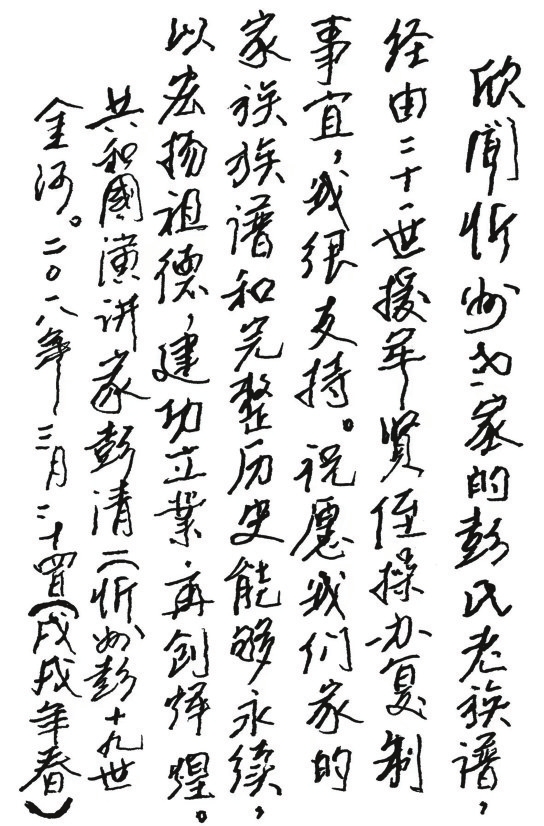 欣闻忻州我家的彭氏老族谱，
经由二十一世援军贤侄操办复制
事宜，我很支持。祝愿我们家的
家族族谱和完整历史能够永续，
以宏扬祖德，建功立业，再创辉煌。
共和國演讲家彭清一忻州彭十九世
金河。二〇一八年三月二十四日(戊戌年春)